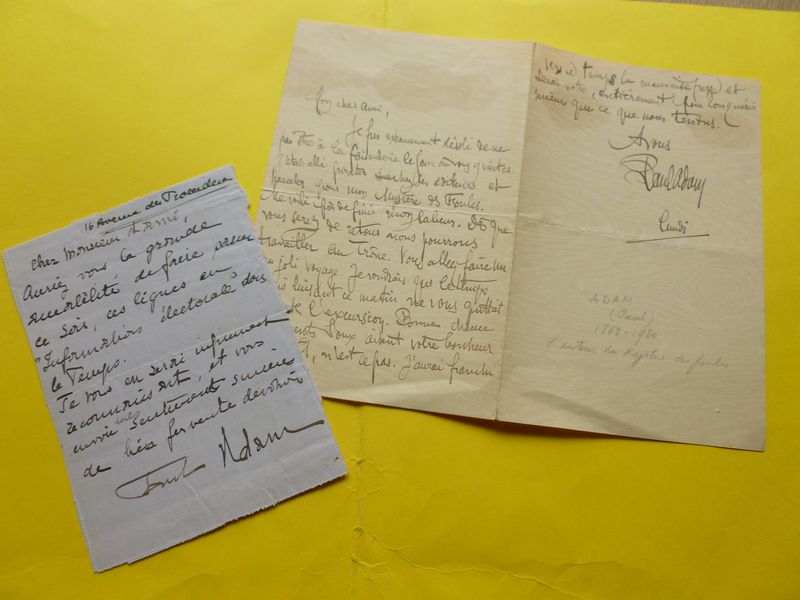 16 Avenue du Trocadéro
Cher Monsieur et ami,
Auriez vous la grande
amabilité de faire passer
ce soir, ces lignes en
"Informations électorales" dans
le Temps.
Je vous en serai infiniment
reconnaissant, et vous
envoie les sentiments sincères
de bien fervente dévotion
Paul Adam
Mon cher ami,
Je fus extrêmement désolé de ne
pas être à la le jour où vous y vintes.
J'étais allé chez les éditeurs et
pour mon Mystère des Foules.
Me voilà de finir mon labeur. Dès que
vous serez de retour nous pourrons
travailler au Trône. Vous allez faire un
joli voyage. Je voudrais que le temps
luisant ce matin ne vous quittât
de l'excursion. Bonne chance
vents doux aient votre bonheur
n'est ce pas. J'aurai franchi
ce temps la mauvaise passe et
serai votre, entièrement pour conquérir
mieux que ce que nous tenons.
A vous
Paul Adam
Lundi
ADAM
(Paul)
1862-1920
l'auteur du Mystère des foules